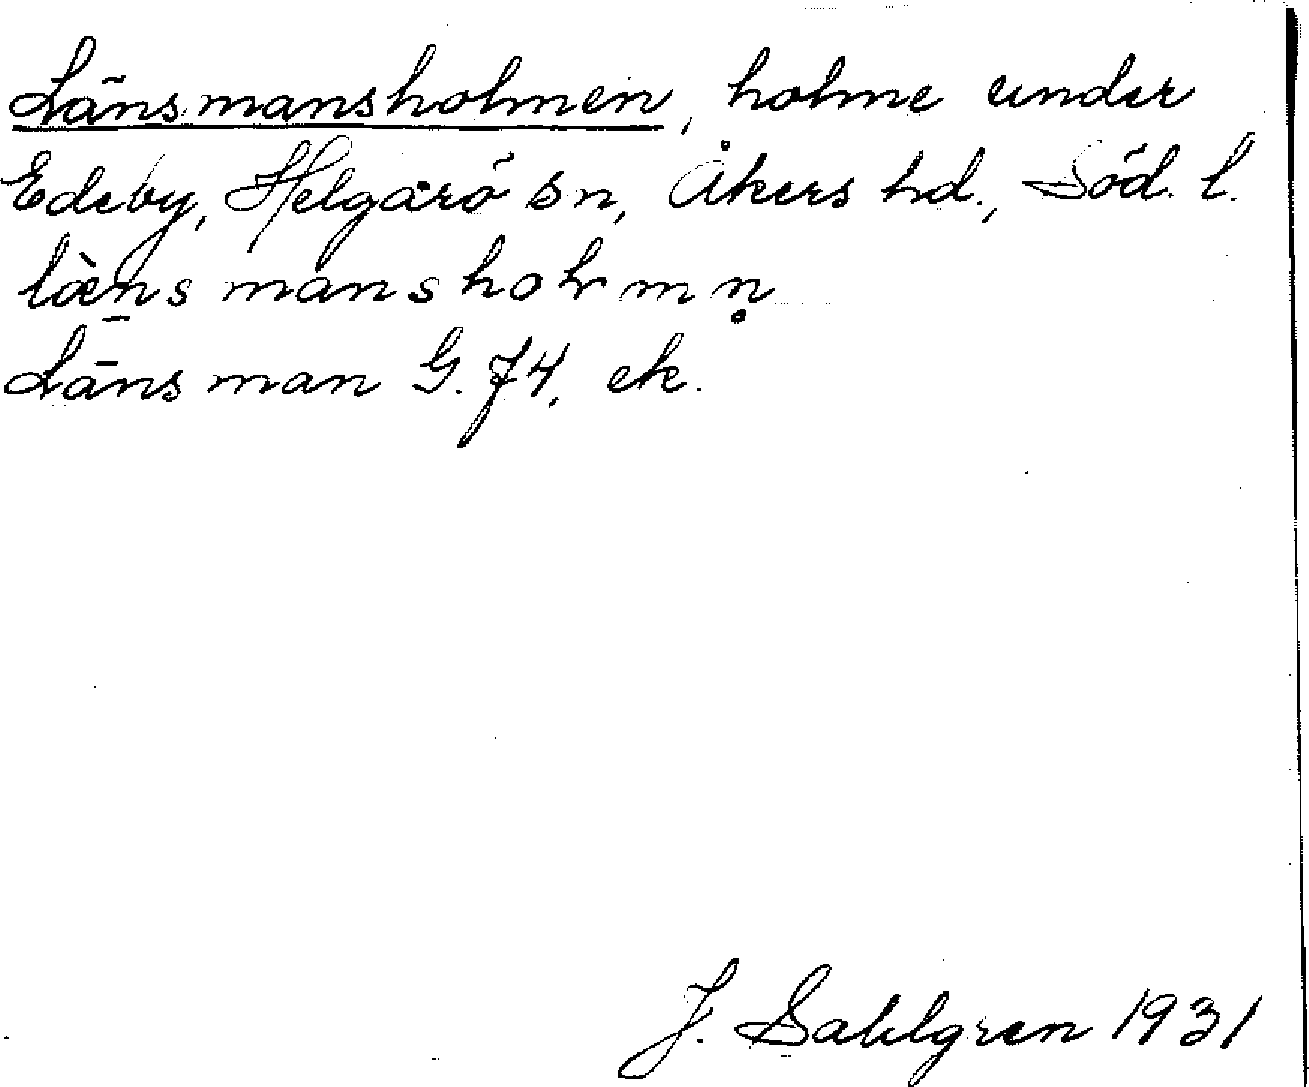 Länsmansholmen, holme under
Edeby, Helgarö sn, Åkers hd., Söd. l.
læ̀nsmansholmn̥
Länsman G. J4, ek.
J. Sahlgren 1931